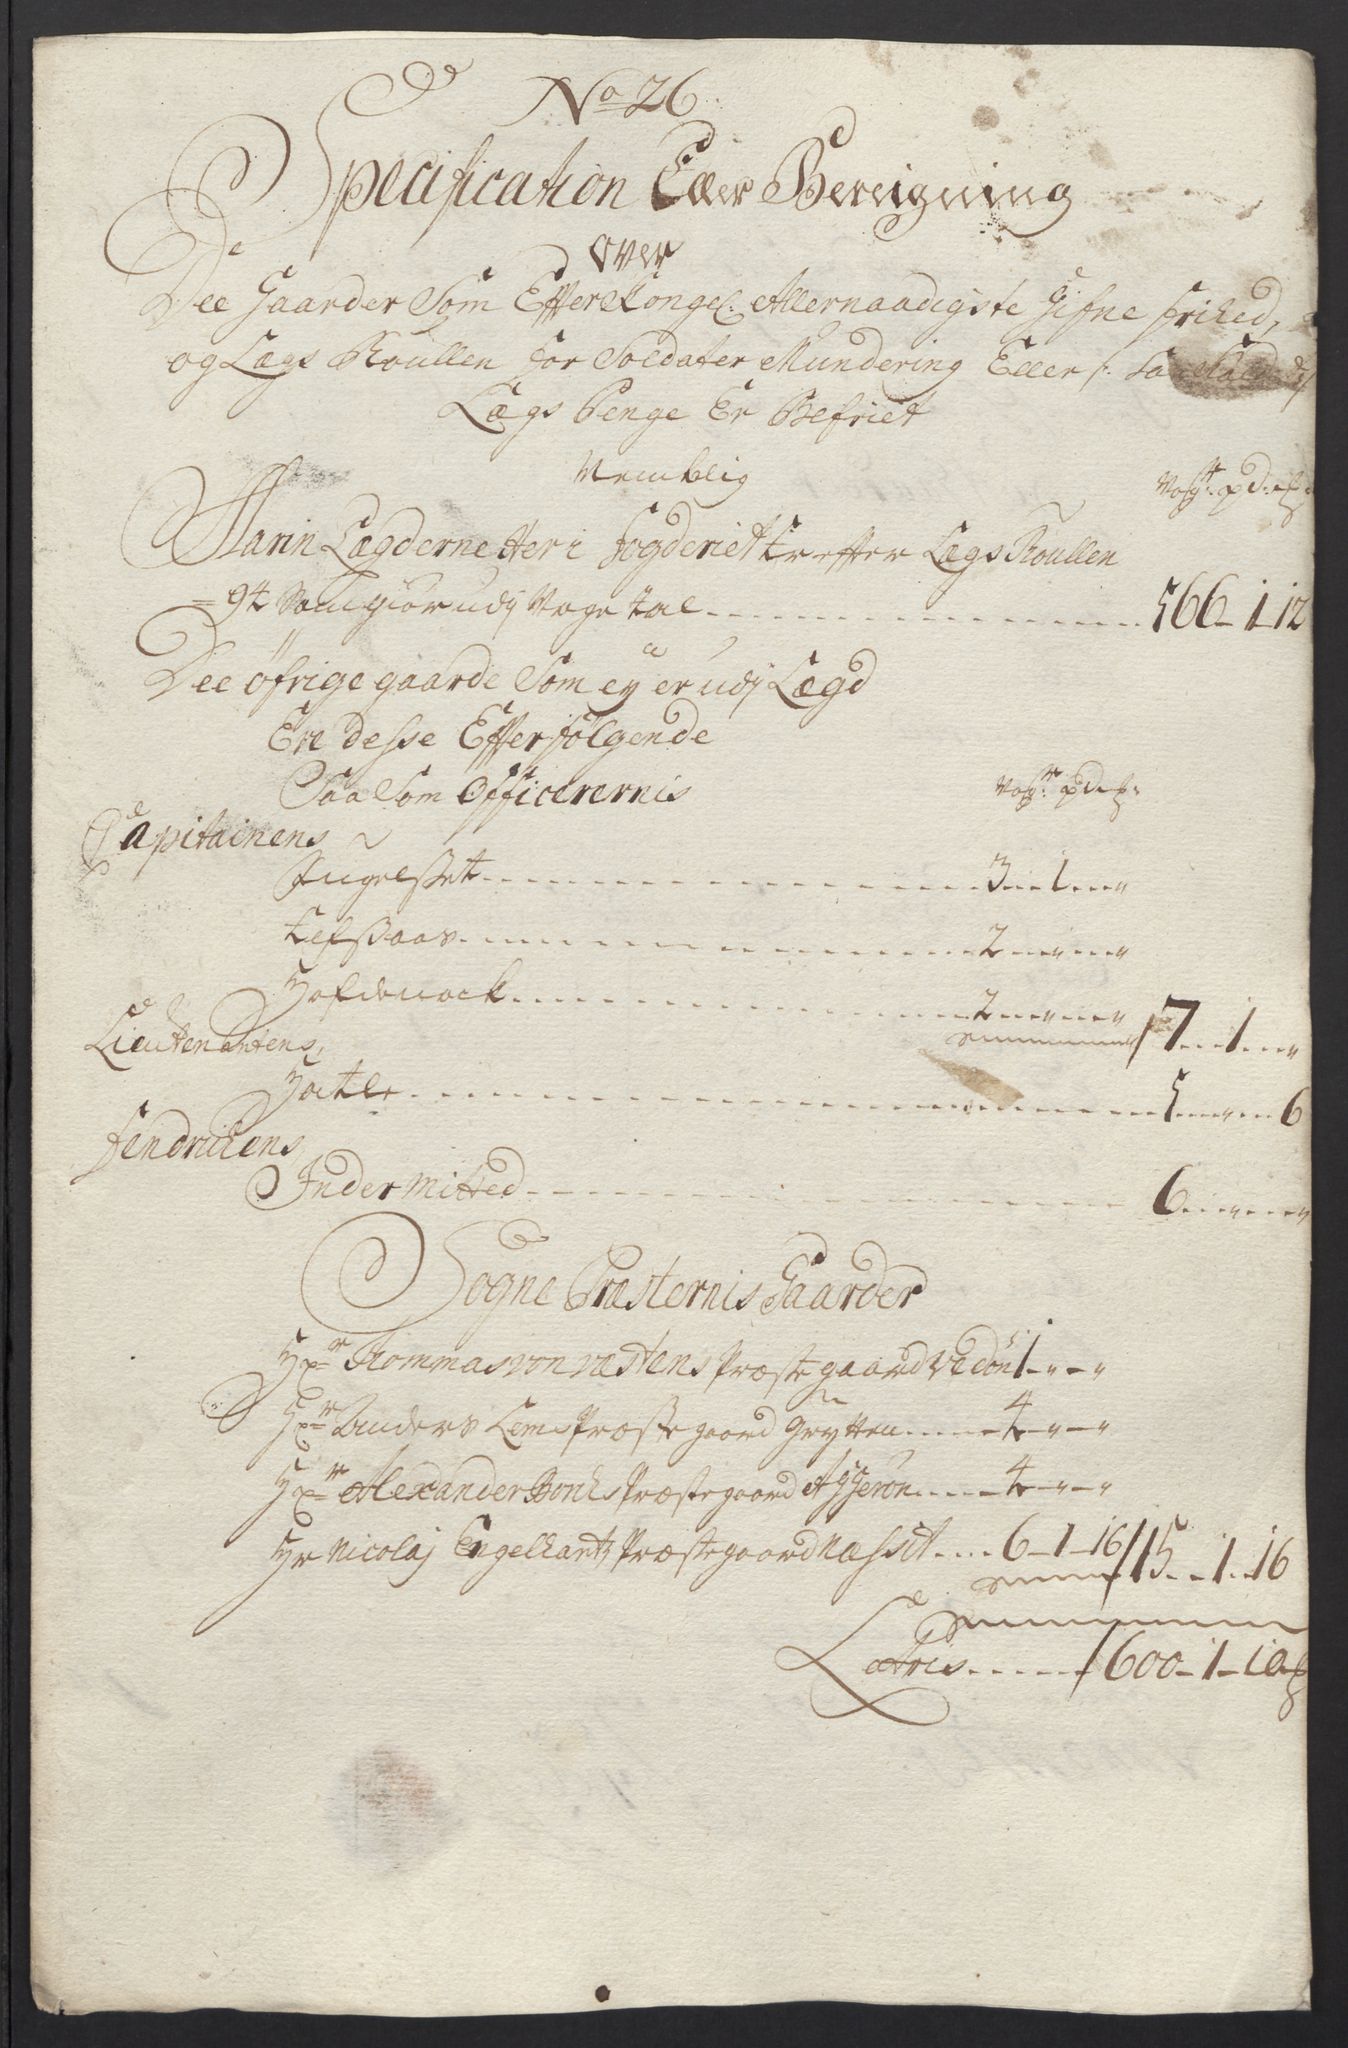 No 26
Specification Eller Bereigning
over
Dee Gaarder Som Effter Kongel: Allernaadigste Gifne frihed,
og Lægs Roullen for Soldater Mundering Eller /: Saa
Lægs Penge Er Befriet
Nemblig
Wog: pd: ℔
Marin Lægderne Her i fogderiet er effter Lægs Roullen
= 94 Som giør udj Woge tal 566 - 1 - 12
Dee øfrige gaarde Som ey er udj Lægd
Ere desse Effterfølgende
Saa Som Officerernis
Wogr: pd: ℔:
Capitainens
Engelsset 3 - 1 - "
Lefssaas 2 - " - "
Hofdenack 2 - " - " / 7 - 1 - "
Lieutenantens,
Hatle 5 - " - 6
fendrichens
Indermitted 6 - " - "
Sogne Præsternis Gaarder
Hr Thommas von væstens Præste gaard Vedøn 1 - " - "
Hr Anders Lems Præste gaard Grytten 4 - " - "
Hr Alexander Bonchs Præste gaard Aggerøn 4 - " - "
Hr Nicolaj Engelhartz Præste gaard Næsset 6 - 1 - 16 / 15 - 1 - 16
Latris 600 - 1 - 10 ℔